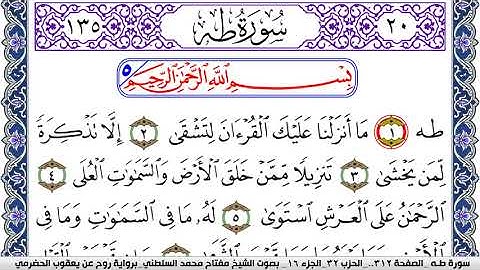 ١٣٥ سورة طه ٢٠
٥ بِسْمِ اللَّهِ الرَّحْمَٰنِ الرَّحِيمِ
طه ١ مَا أَنزَلْنَا عَلَيْكَ الْقُرْءَانَ لِتَشْقَى ٢ إِلَّا تَذْكِرَةً
لِّمَن يَخْشَى ٣ تَنزِيلًا مِّمَّنْ خَلَقَ الْأَرْضَ وَالسَّمَٰوَٰتِ الْعُلَى ٤
الرَّحْمَٰنُ عَلَى الْعَرْشِ اسْتَوَىٰ ٥ لَهُ مَا فِي السَّمَٰوَٰتِ وَمَا فِي
سورة طه_ الصفحة ٣١٢... الحزب ٣٢ .الجزء ١٦ _ بصوت الشيخ مفتاح محمد السلطني_ برواية روح عن يعقوب الحضرمي